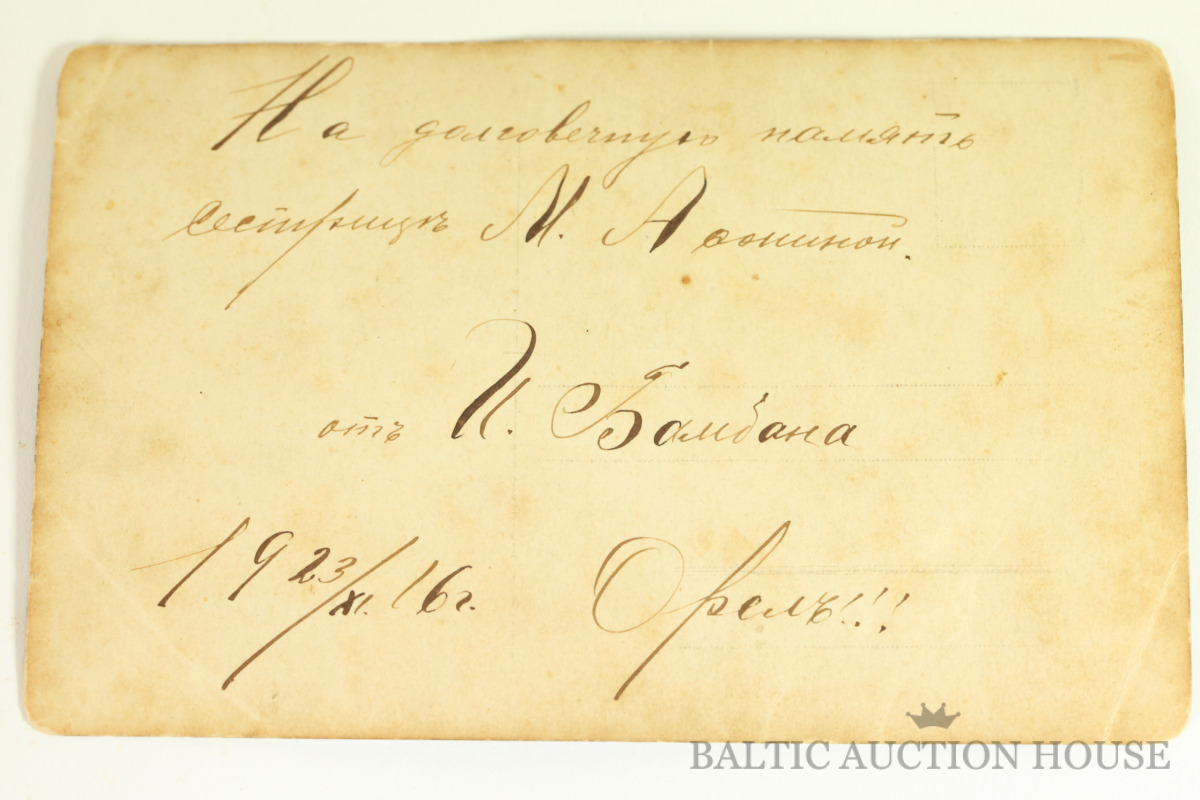 На долговечную память
сестрицѣ М.
отъ И. Бамбана
19 23/XI. 16 г. Орелъ!!!
BALTIC AUCTION HOUSE